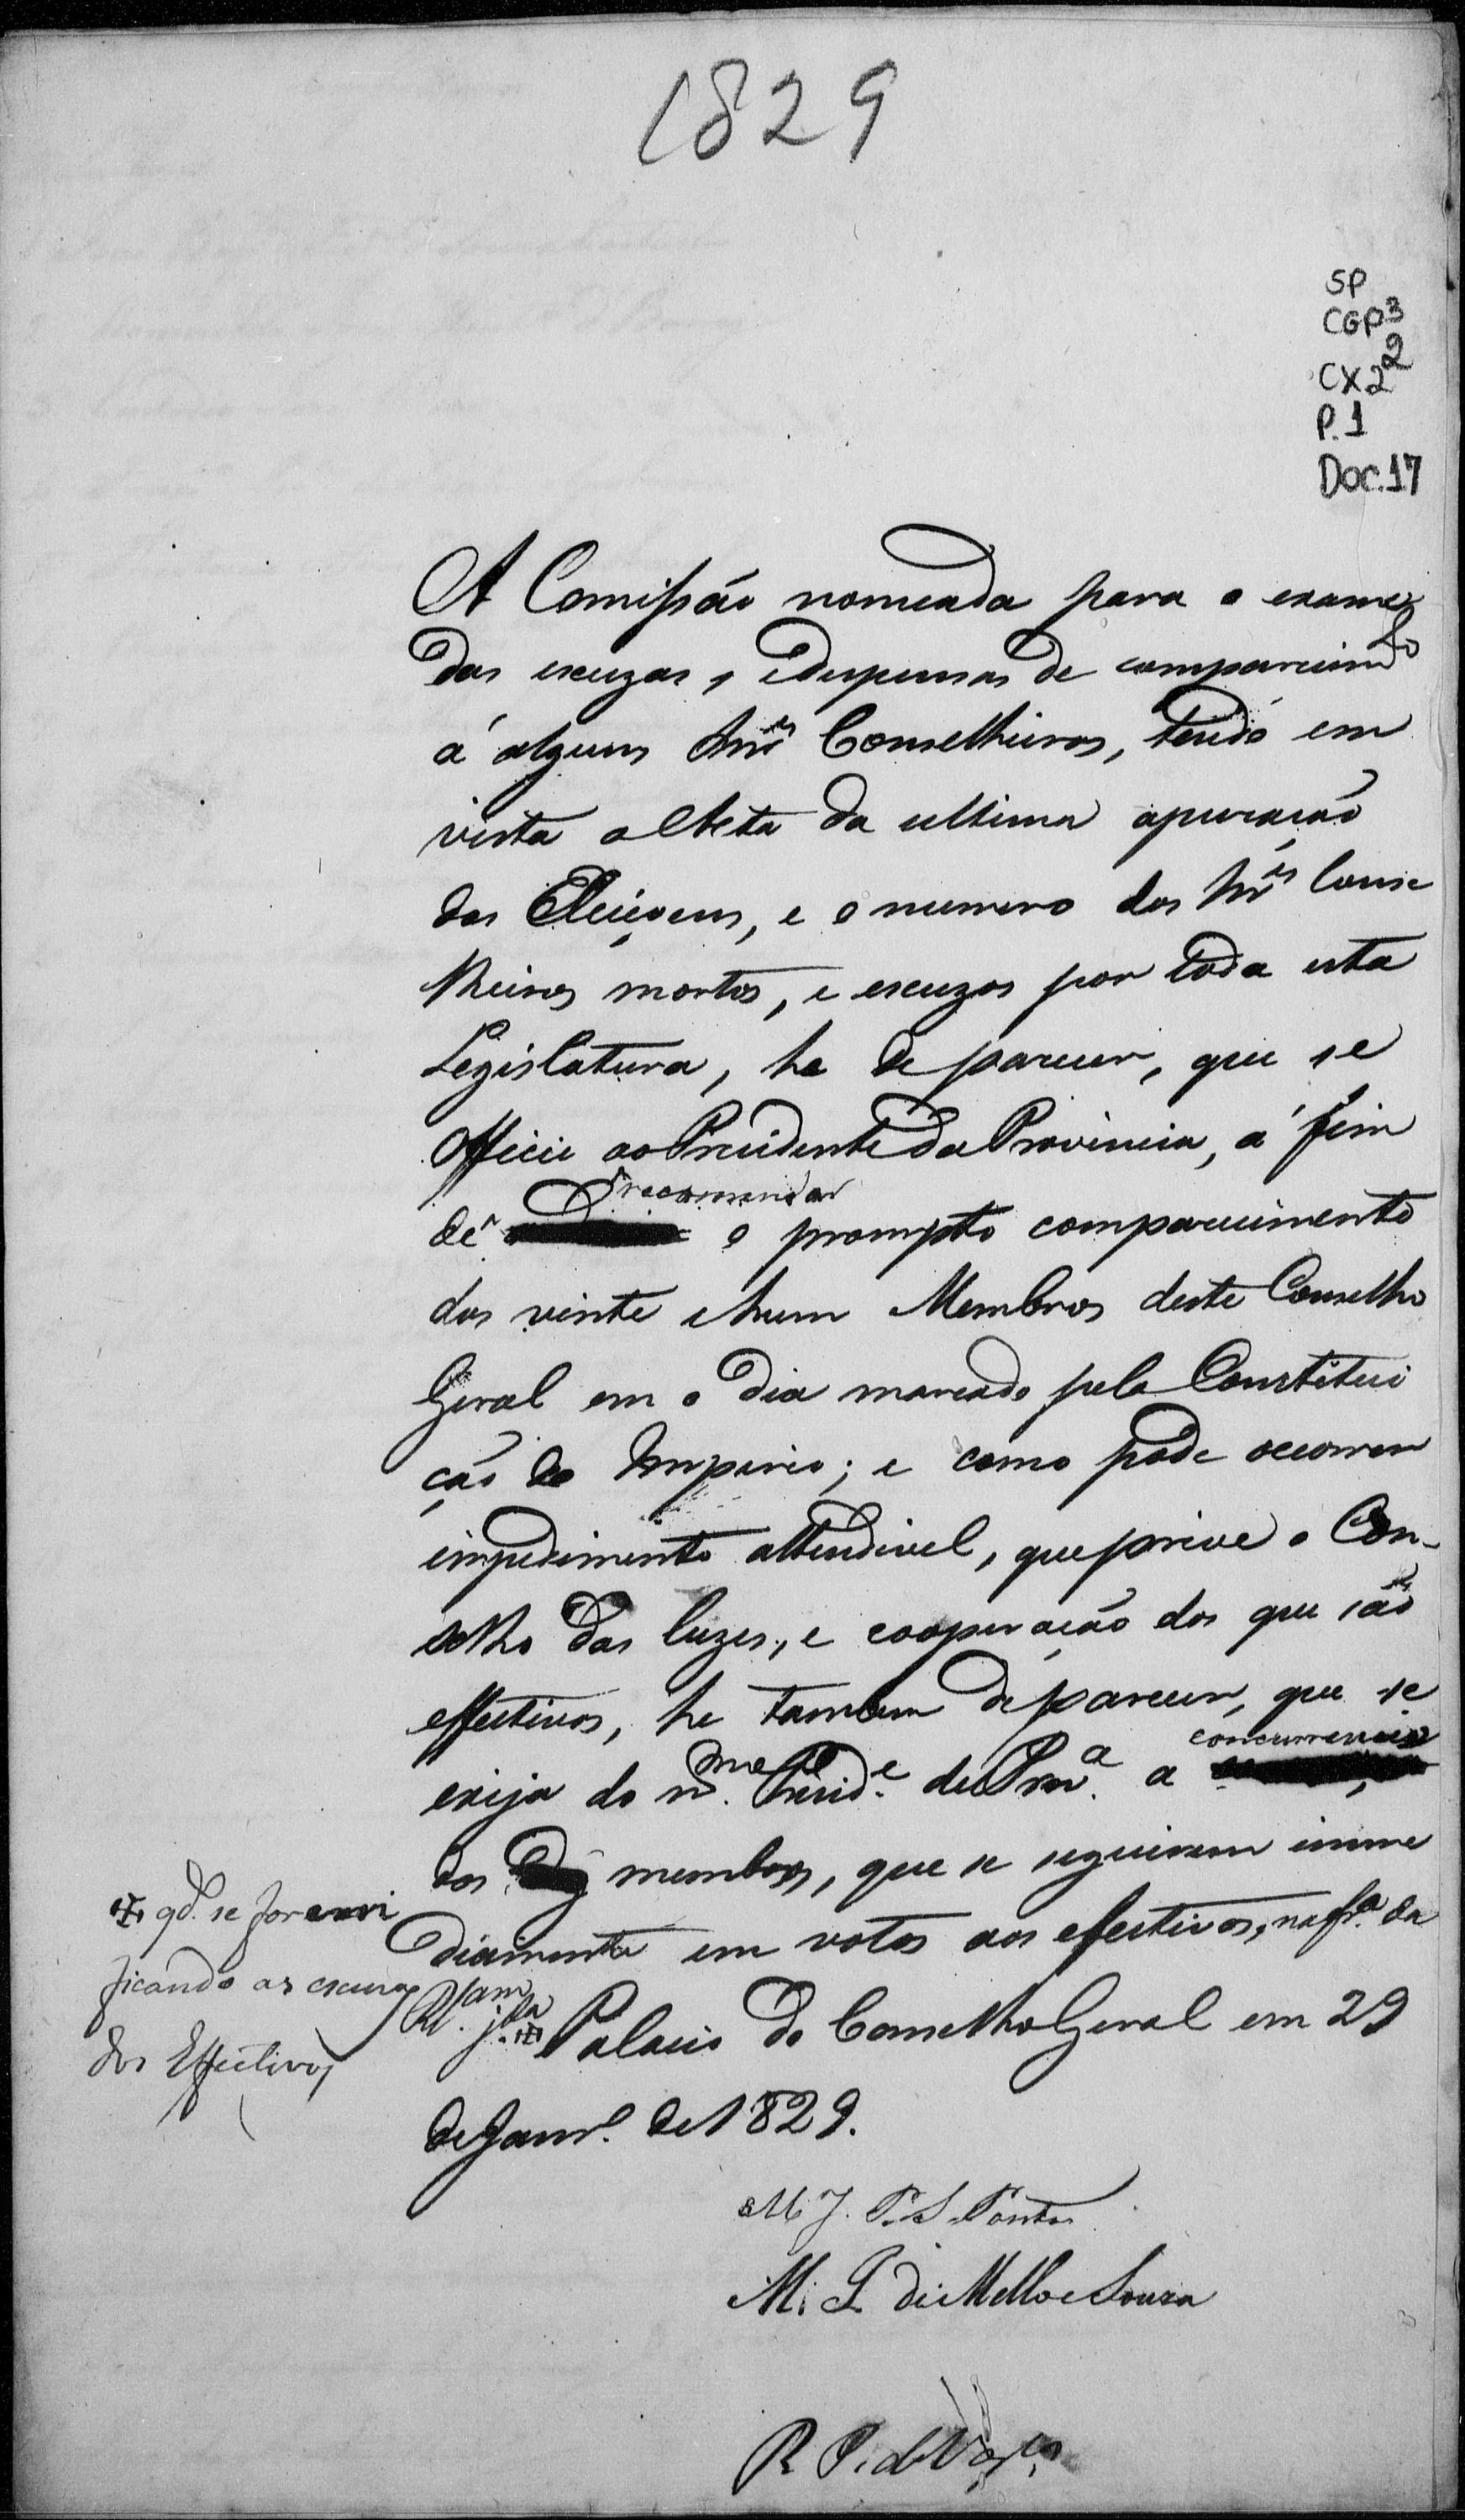 1829
SP
CGP3
CX2 2
P.1
Doc.17
A Comissão nomeada para o exame
das escuzas, e dispensas de comparecimto
á alguns Snres Conselheiros, tendo em
vista a Acta da ultima apuração
das Eleiçoens, e o numero dos Snres Conse
lheiros mortos, e escuzos por toda esta
Legislatura, he de parecer, que se
Officie ao Presidente da Provincia, á fim
de recomendar o prompto comparecimento
dos vinte e hum Membros deste Conselho
Geral em o dia marcado pela Constitui
ção do Imperio; e como pode occorrer
impedimento attendivel, que prive o Con-
selho das luzes, e cooperação dos que são
effectivos, he tambem de parecer, que se
exija do mmo Preside da Prova a concurrencia
dos membros, que se seguirem imme
diamente em votos aos efectivos, na fra da
Palacio do Conselho Geral em 29
de Janro de 1829.
qdo se forem veri
ficando as escuzas
dos Effectivos
M. J. P. S. Pontes
M. I. de Mello e Souza